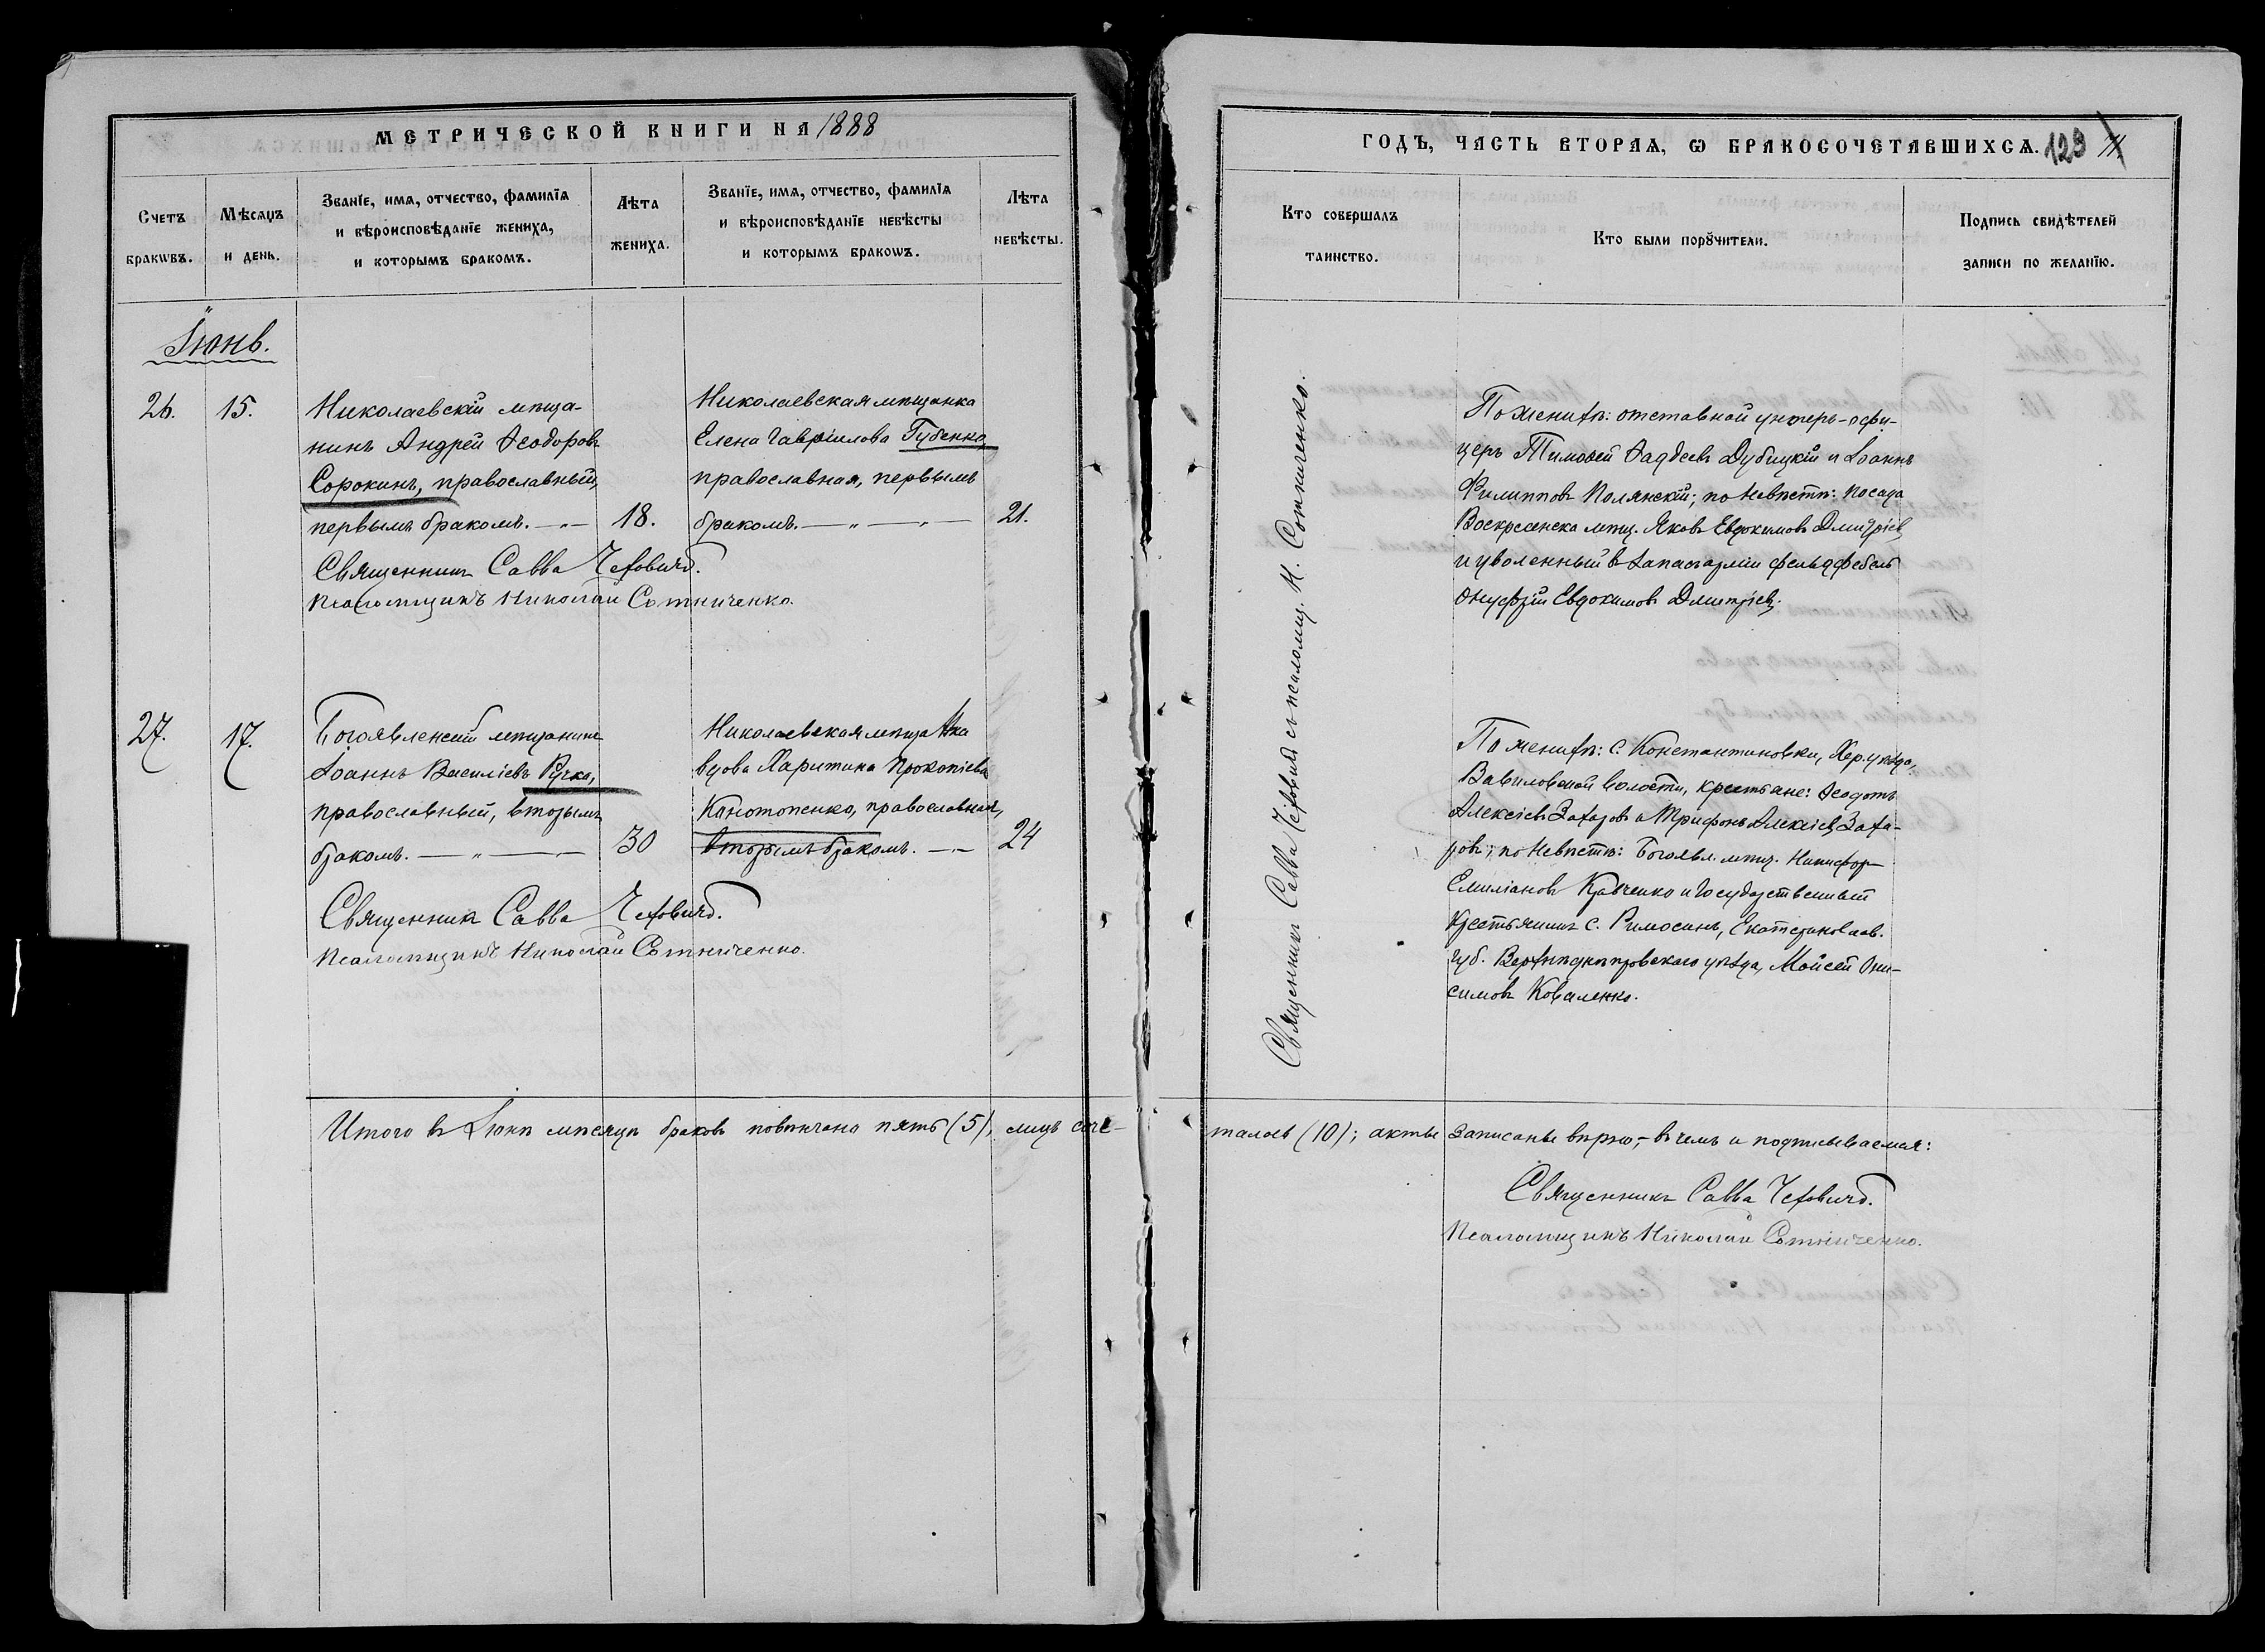 МЕТРИЧЕСКОЙ КНИГИ НА 1888
Счетъ браквъ.
Мѣсяцъ и день.
Званїе, имя, отчество, фамилїя и вѣроисповѣданїе жениха, и которымъ бракомъ.
Лѣта жениха.
Званїе, имя, отчество, фамилїя и вѣроисповѣданїе невѣсты и которымъ бракомъ.
Лѣта невѣсты.
Іюнь.
26. 15.
Николаевскій мѣща-
нинъ Андрей Ѳеодоровъ
Сорокинъ, православный,
первымъ бракомъ. —„— 18.
Николаевская мѣщанка
Елена Гавріилова Губенко,
православная, первымъ
бракомъ. —„—„— 21.
Священникъ Савва
Псаломщикъ Николай Сотниченко.
27. 17.
Богоявленскій мѣщанинъ
Іоаннъ Василіевъ Ручко,
православный, вторымъ
бракомъ. —„—„— 30
Николаевская мѣщанка
вдова Харитина Прокопіева
Конотопенко, православная,
вторымъ бракомъ. —„— 24
Священникъ Савва
Псаломщикъ Николай Сотниченко.
Итого въ Іюнѣ мѣсяцѣ браковъ повѣнчано пять (5), лицъ соче-
ГОДЪ, ЧАСТЬ ВТОРАЯ, Ѡ БРАКОСОЧЕТАВШИХСЯ. 123
Кто совершалъ таинство.
Кто были порꙋчители.
Подпись свидѣтелей записи по желанїю.
Священникъ Савва съ псаломщ. Н. Сотниченко.
По женихѣ: отставной унтеръ-офи-
церъ Тимоѳей Ѳаддеевъ Дубицкій и Іоаннъ
Филипповъ Полянскій; по невѣстѣ: посада
Воскресенска мѣщ. Яковъ Евдокимовъ Дмитріевъ
и уволенный въ запасъ арміи фельдфебель
Онуфрій Евдокимовъ Дмитріевъ.
По женихѣ: с. Константиновки, Хер. уѣзда,
Вавиловской волости, крестьяне: Ѳеодотъ
Алексіевъ Захаровъ и Трифонъ Алексіевъ Заха-
ровъ; по невѣстѣ: Богоявл. мѣщ. Никифоръ
Емиліановъ Кравченко и государственный
крестьянинъ с. Екатеринослав.
губ. Верхнеднѣпровскаго уѣзда, Мойсей Они-
симовъ Коваленко.
талось (10); акты записаны вѣрно,- въ чемъ и подписываемся:
Священникъ Савва
Псаломщикъ Николай Сотниченко.